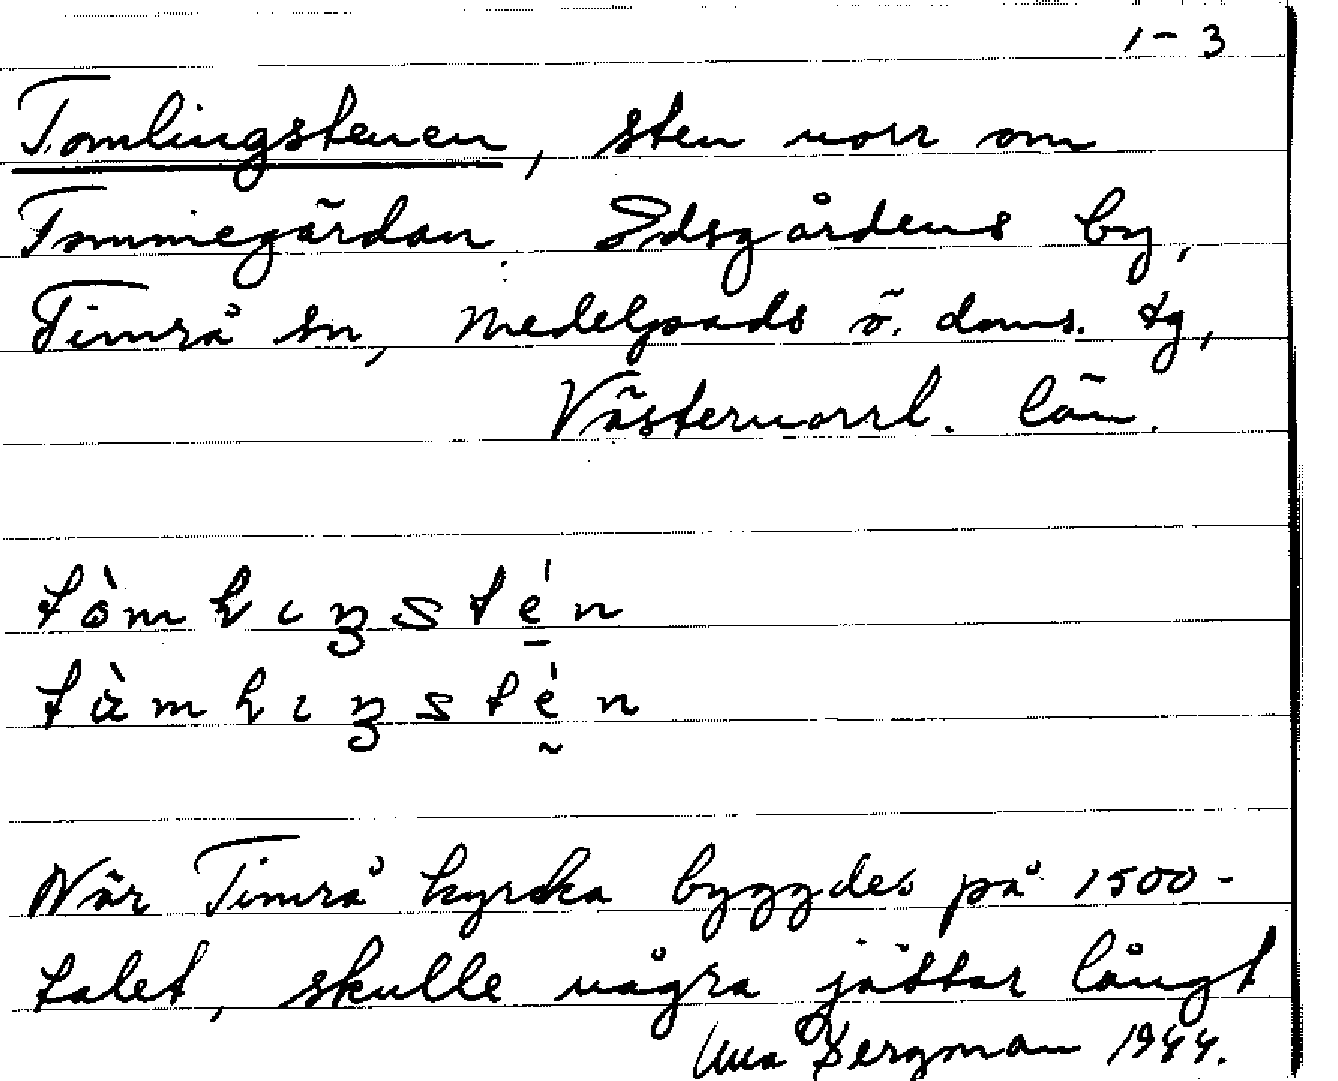 1-3
Tomlingstenen, sten norr om
Tommegärdan Edsgårdens by,
Timrå sn, Medelpads ö. doms. tg,
Västernorrl. län.
När Timrå kyrka byggdes på 1500-
talet, skulle några jättar långt
Una Bergman 1944.